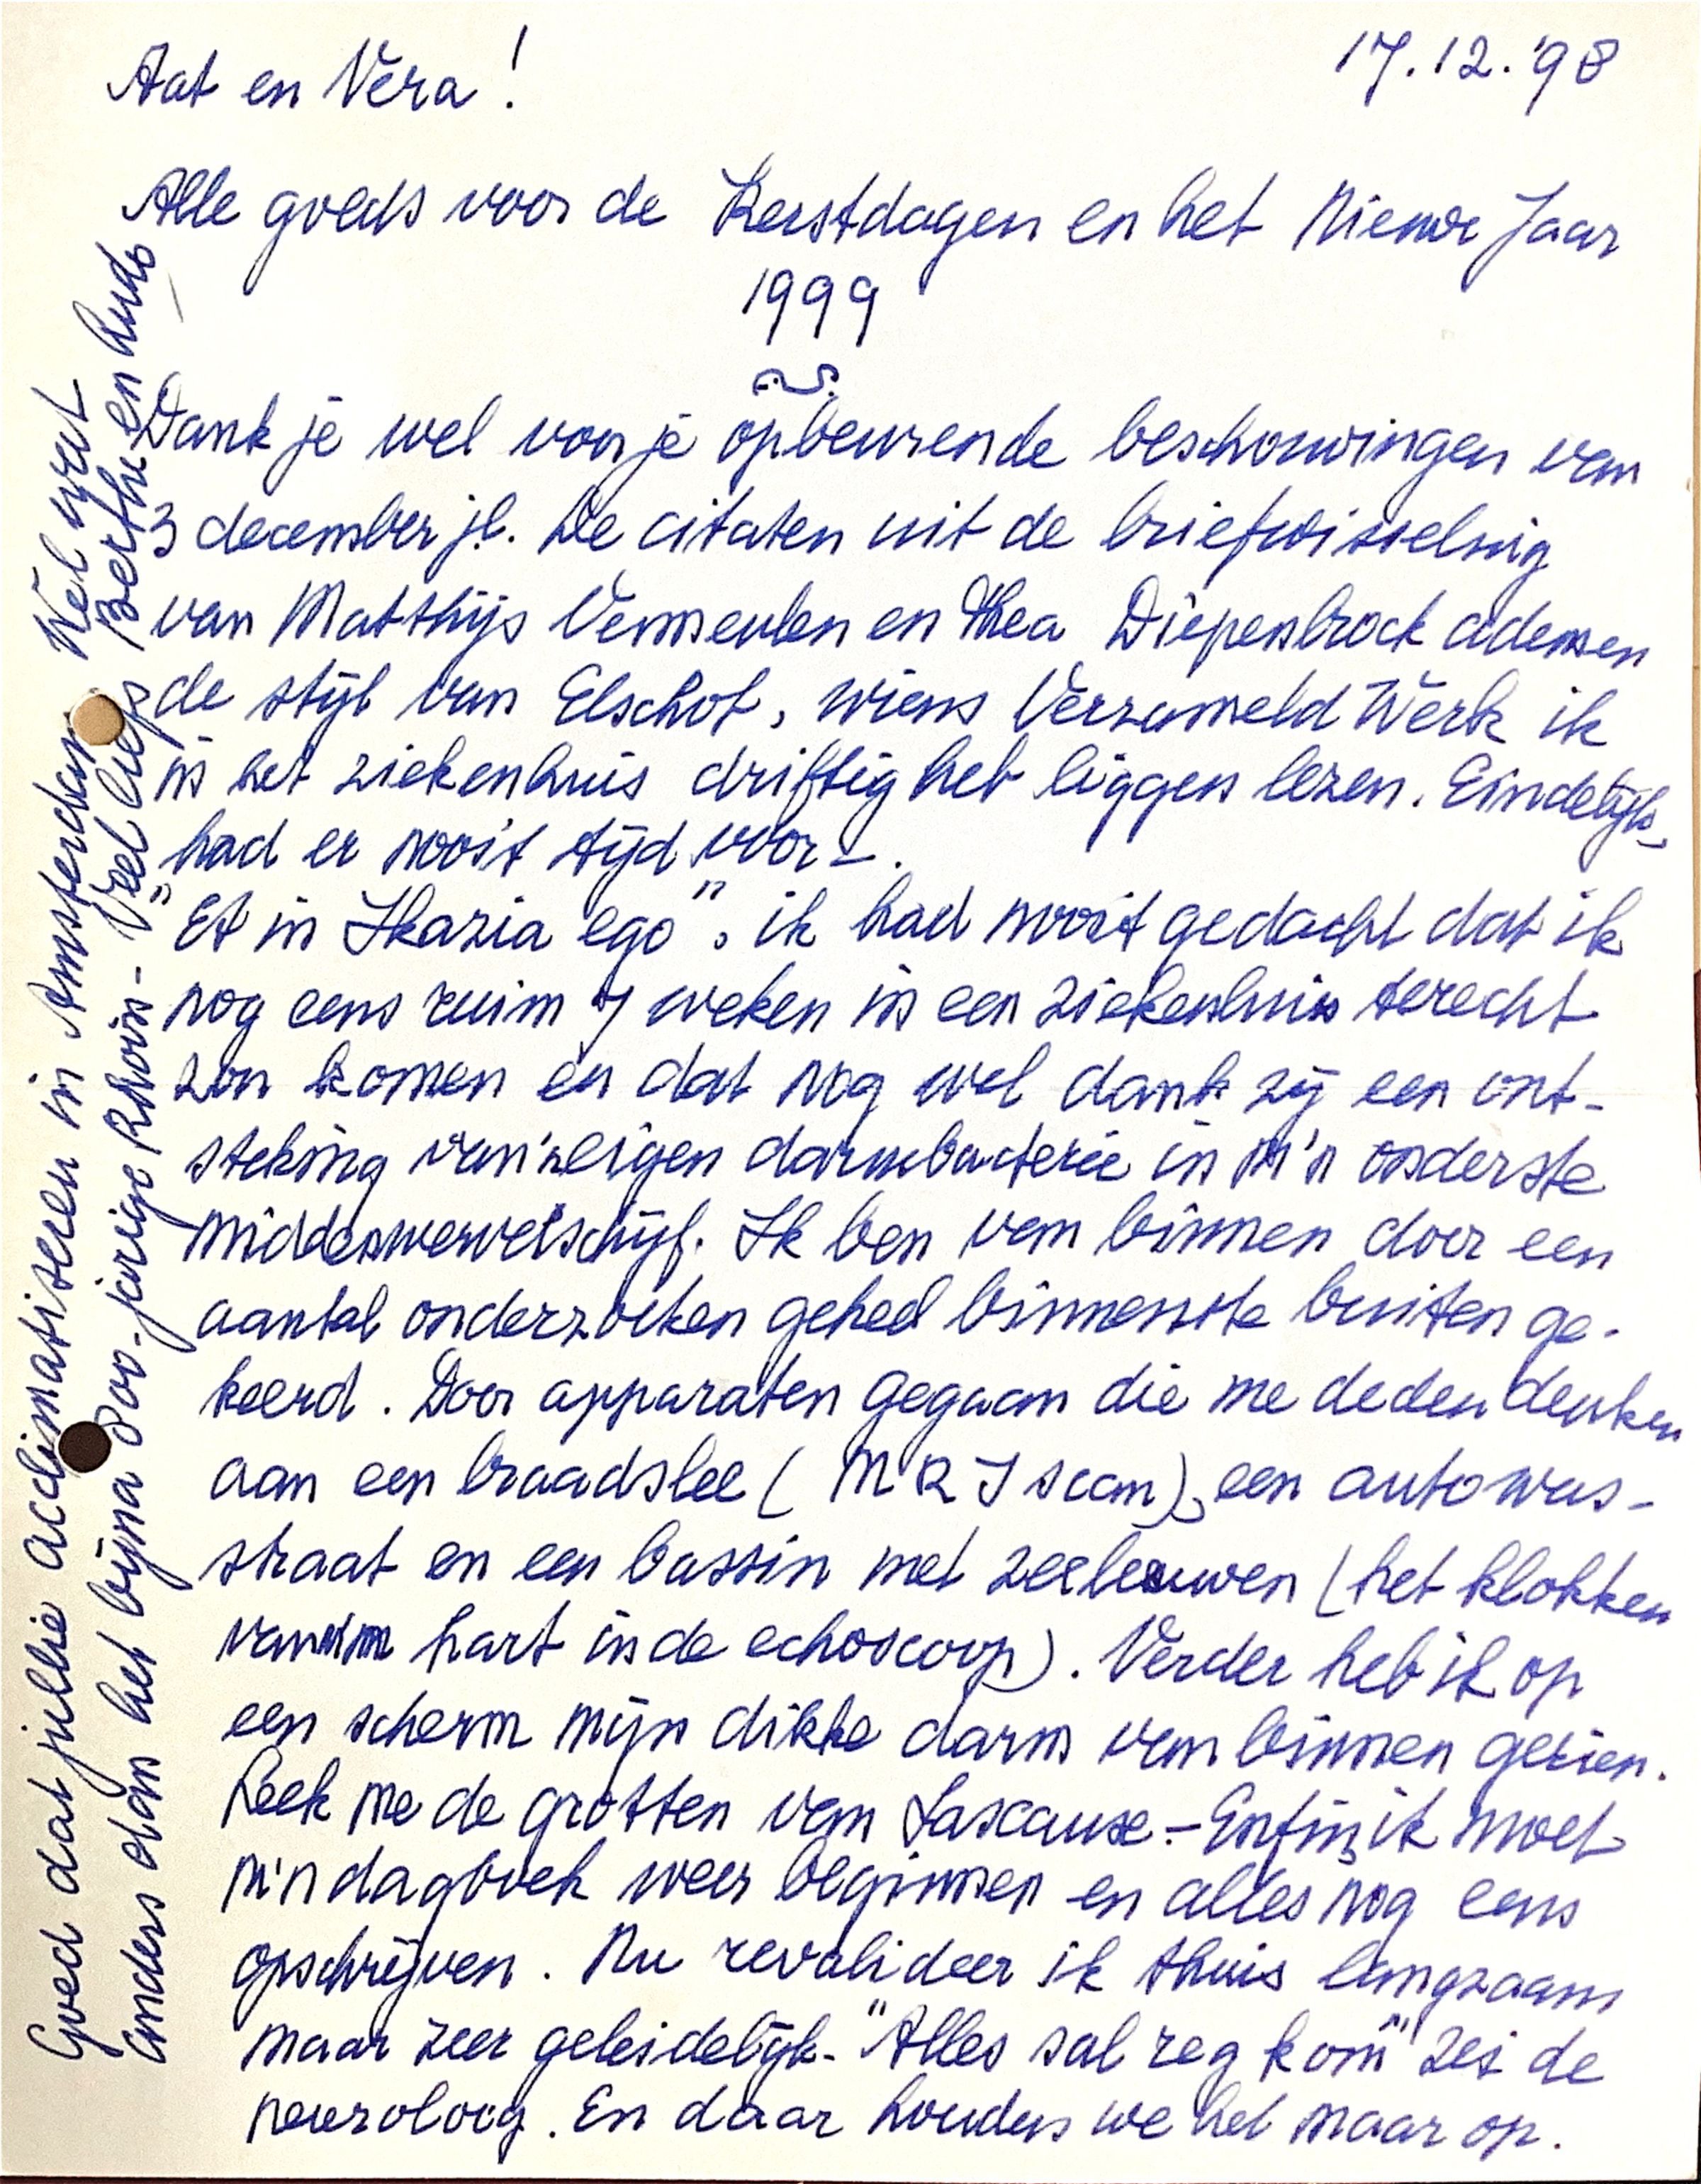 Aat en Vera!
17.12.'98
Alle goeds voor de Kerstdagen en het Nieuwe Jaar
1999
Dank je wel voor je opbeurende beschouwingen van
3 december jl. De citaten uit de briefwisseling
van Matthijs Vermeulen en Thea Diepenbrock ademen
de stijl van Elschot, wiens Verzameld Werk ik
in het ziekenhuis driftig heb liggen lezen. Eindelijk-
had er nooit tijd voor-.
"Et in Ikazia ego", ik had nooit gedacht dat ik
nog eens ruim 7 weken in een ziekenhuis terecht
zou komen en dat nog wel dank zij een ont-
steking van 'n eigen darmbacterie in m'n onderste
middenwervelschijf. Ik ben van binnen door een
aantal onderzoeken geheel binnenste buiten ge-
keerd. Door apparaten gegaan die me deden denken
aan een braadslee (MRI scan), een autowas-
straat en een bassin met zeeleeuwen (het klokken
van m'n hart in de echoscoop). Verder heb ik op
een scherm mijn dikke darm van binnen gezien.
Leek me de grotten van Lascaux.- Enfin, ik moet
m'n dagboek weer beginnen en alles nog eens
opschrijven. Nu revalideer ik thuis langzaam
maar zeer geleidelijk- "Alles sal reg kom" zei de
neuroloog. En daar houden we het maar op.
Goed dat jullie acclimatiseren in Amsterdam Wel wat
anders dan het bijna 800-jarige Rhoon- Veel liefs Berthe en Ludo